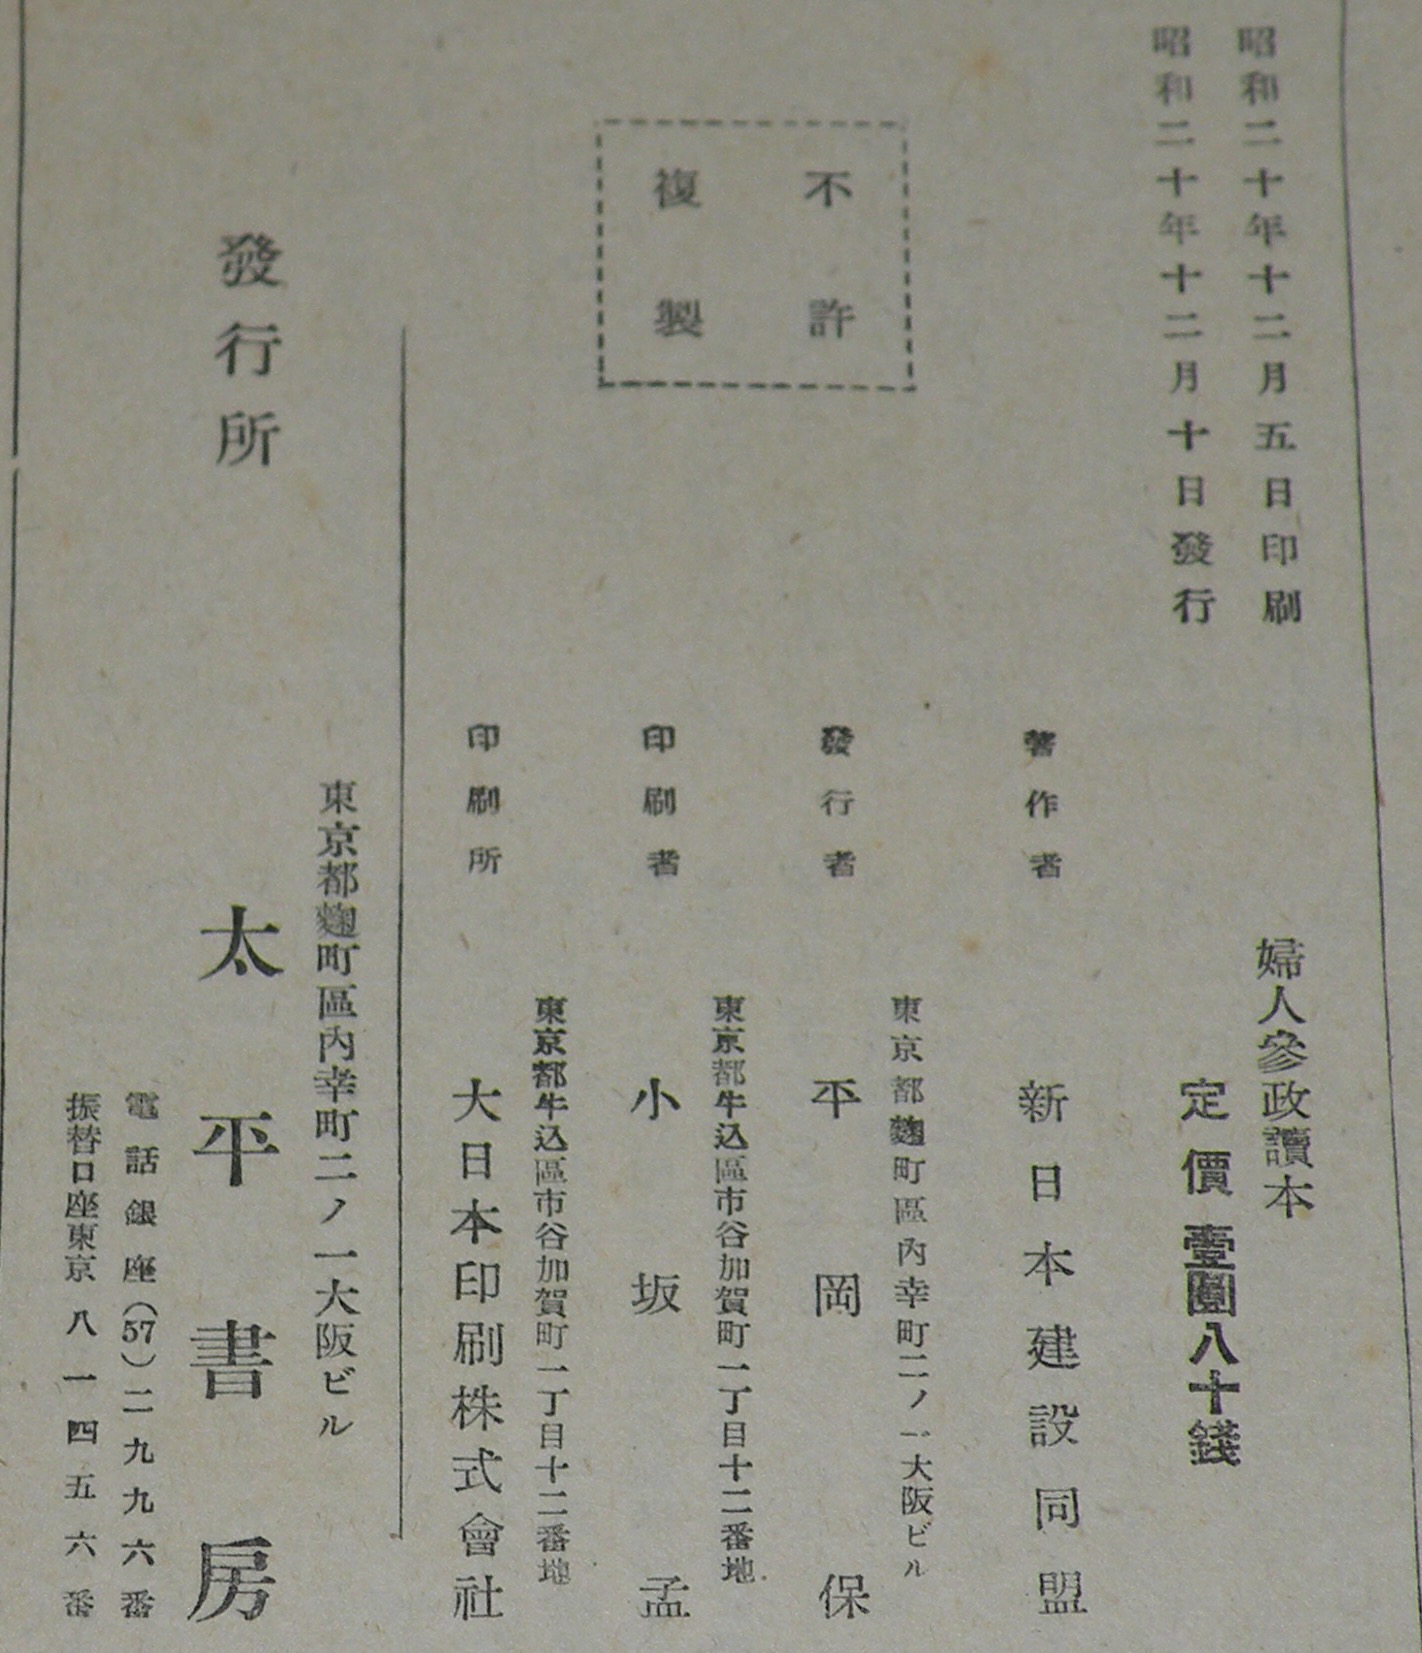 昭和二十年十二月五日印刷
昭和二十年十二月十日發行
婦人參政讀本
定價壹圓八十錢
著作者 新日本建設同盟
東京都麴町區內幸町二ノ一大阪ビル
發行者 平岡保
不許
複製
東京都牛込區市谷加賀町一丁目十二番地
印刷者 小坂孟
東京都牛込區市谷加賀町一丁目十二番地
印刷所 大日本印刷株式會社
東京都麴町區內幸町二ノ一大阪ビル
發行所 太平書房
電話銀座(57)二九九六番
振替口座東京八一四五六番